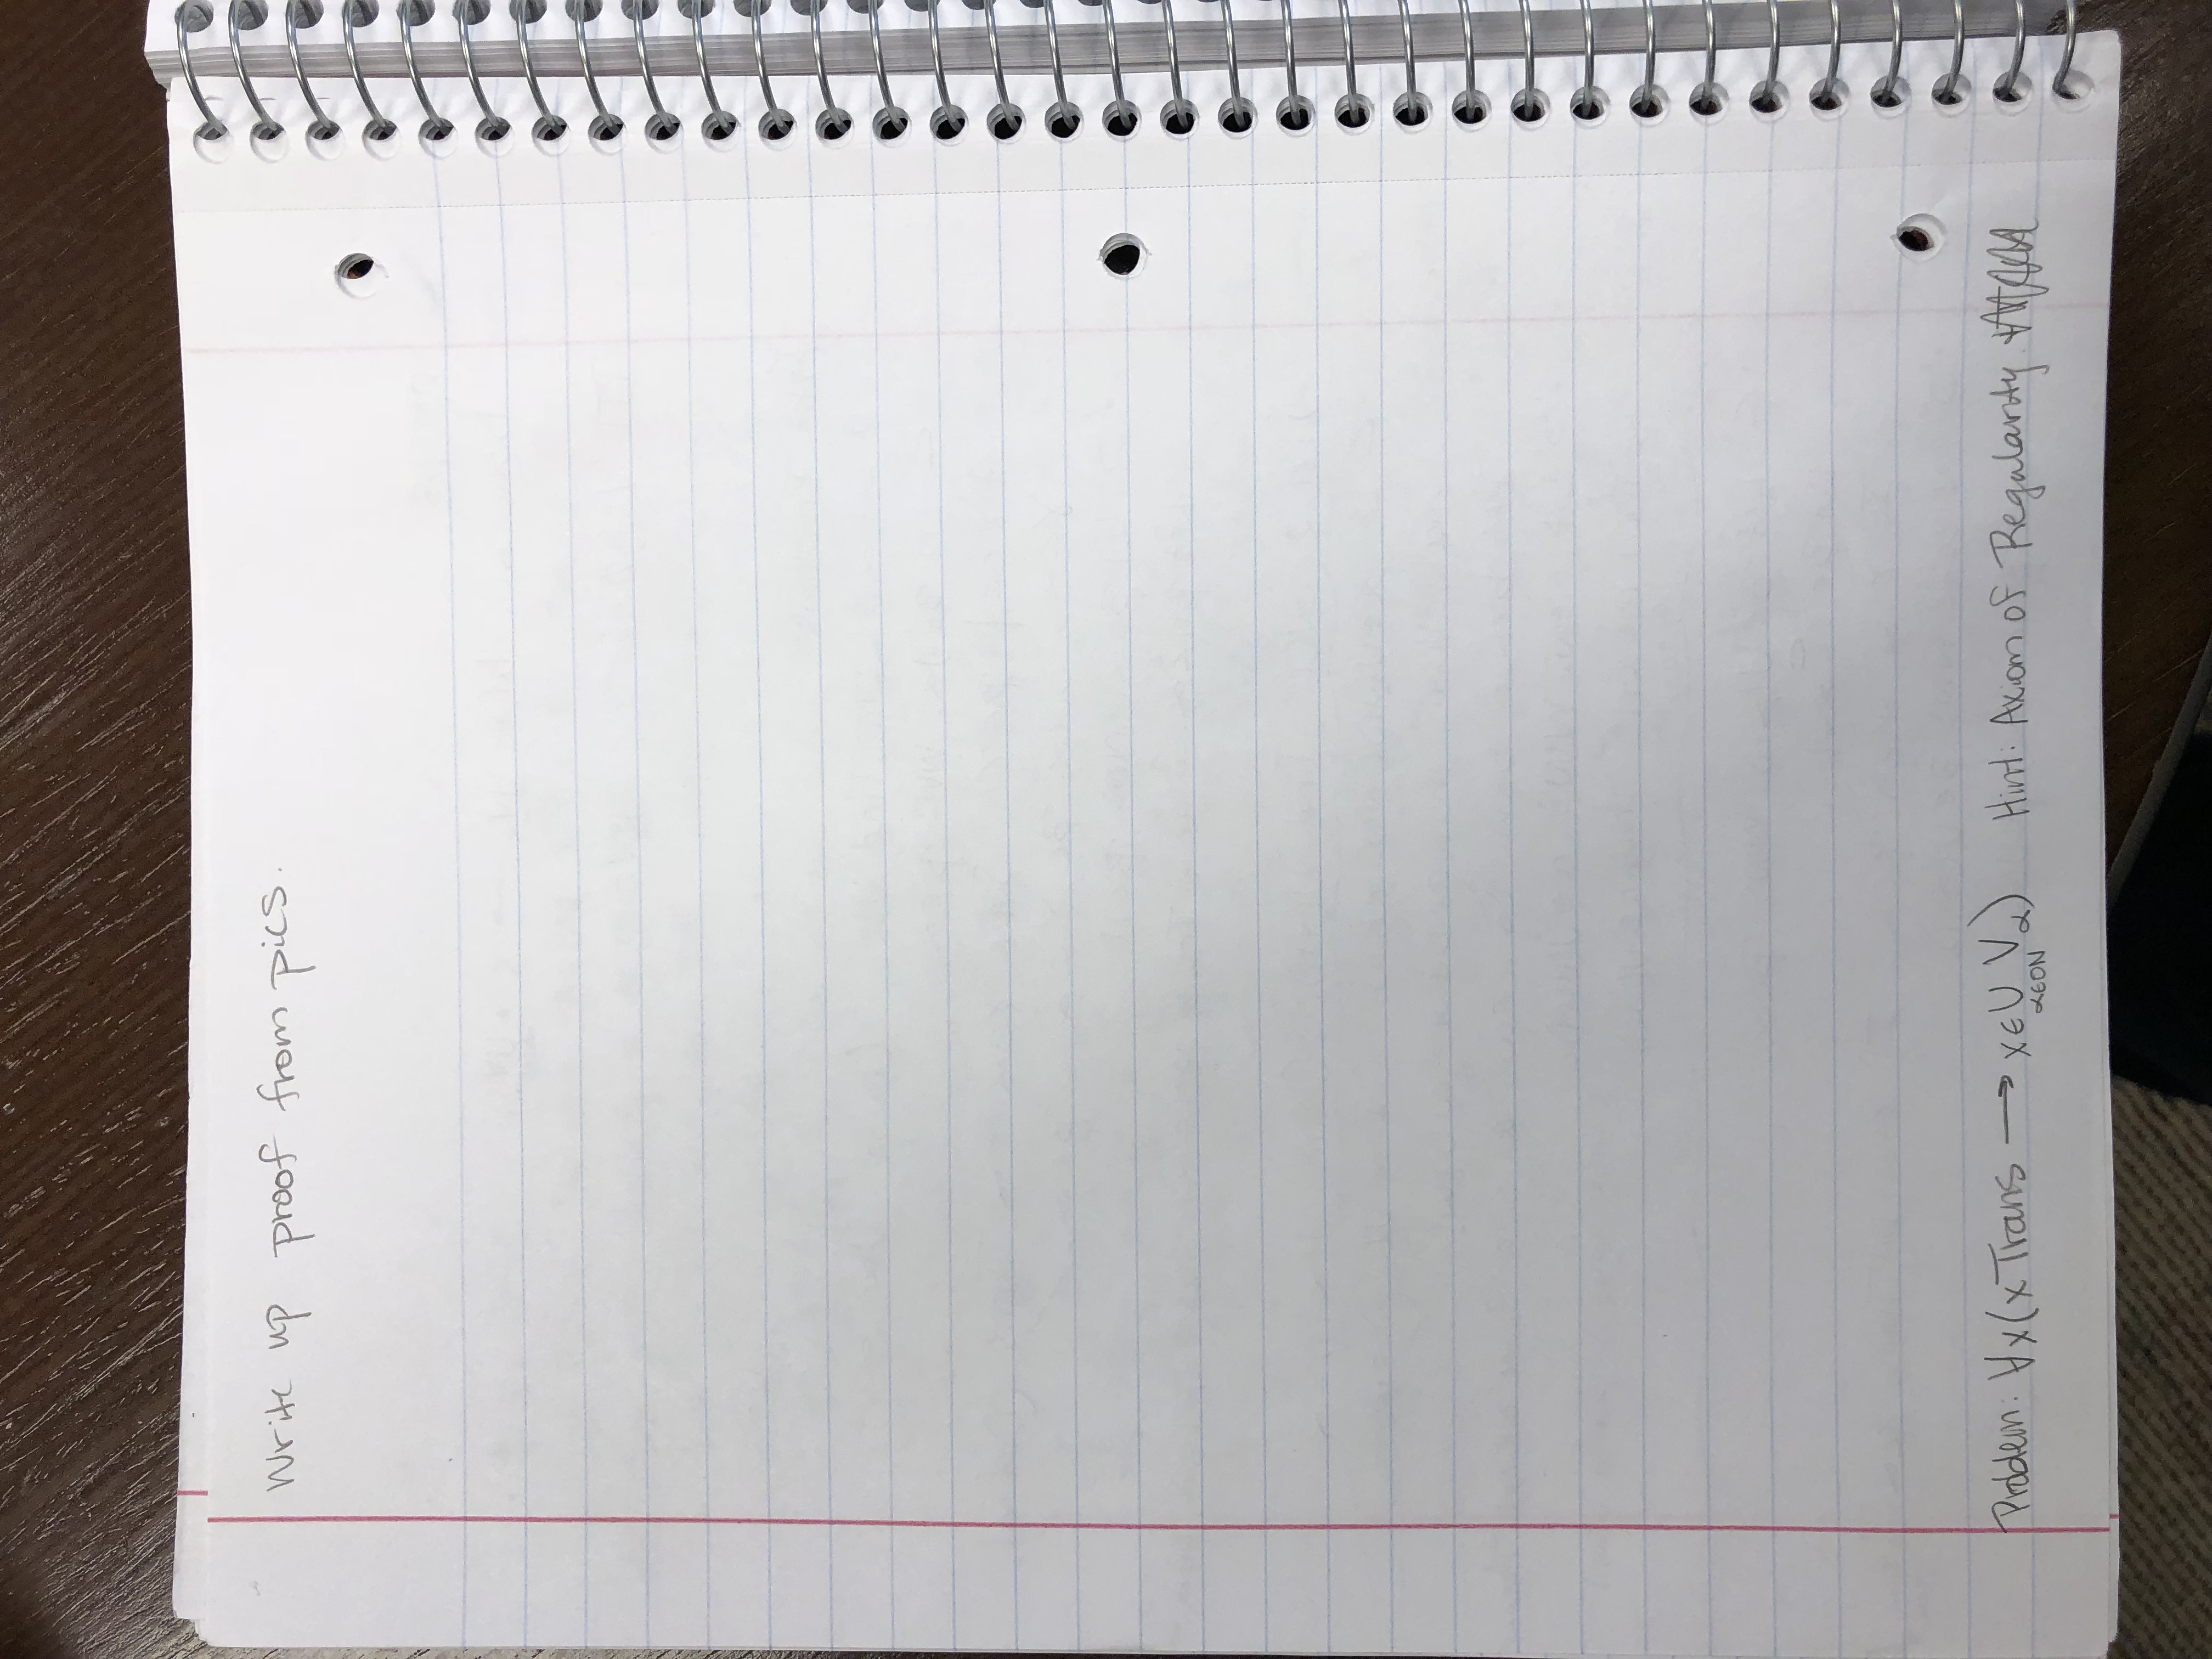 Write up proof from pics.
Problem: ∀x(x Trans → x ∈ ∪ V_α) Hint: Axiom of Regularity
α∈ON